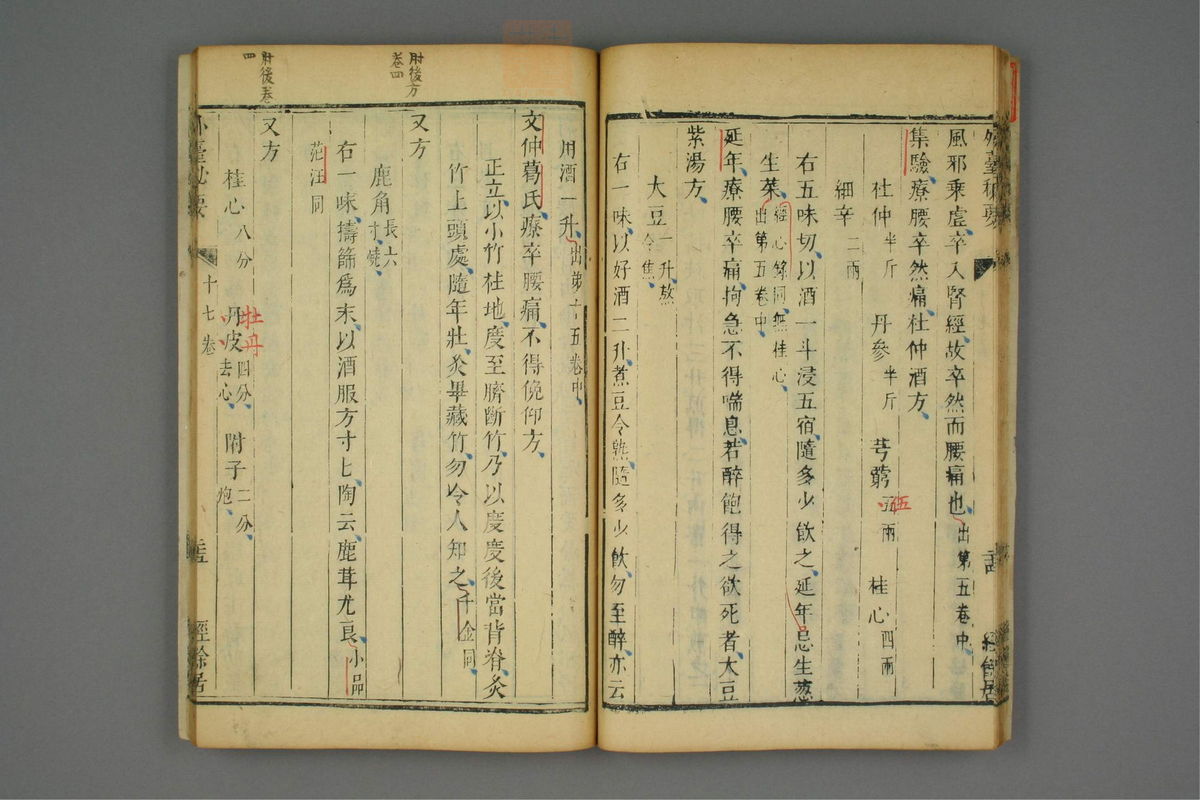 外臺秘要
風邪乘虛卒入腎經故卒然而腰痛也出第五卷中
集驗療腰卒然痛杜仲酒方
杜仲半斤 丹參半斤 芎藭五兩 桂心四兩
伍
細辛二兩
右五味切以酒一斗浸五宿隨多少飲之延年忌生葱
生菜經心錄同無桂心出第五卷中
延年療腰卒痛拘急不得喘息若醉飽得之欲死者大豆
紫湯方
大豆一升熬令焦
右一味以好酒二升煮豆令熟隨多少飲勿至醉亦云
經餘居
用酒一升出第十五卷中
文仲葛氏療卒腰痛不得俛仰方
正立以小竹柱地度至臍斷竹乃以度度後當背脊灸
竹上頭處隨年壯灸畢藏竹勿令人知之千金同
肘後方
卷四
又方
鹿角長六寸燒
右一味擣篩爲末以酒服方寸匕陶云鹿茸尤良小品
范汪同
肘後卷
四
又方
桂心八分 丹皮四分去心 附子二分炮
牡丹
外臺秘要 十七卷 經餘居